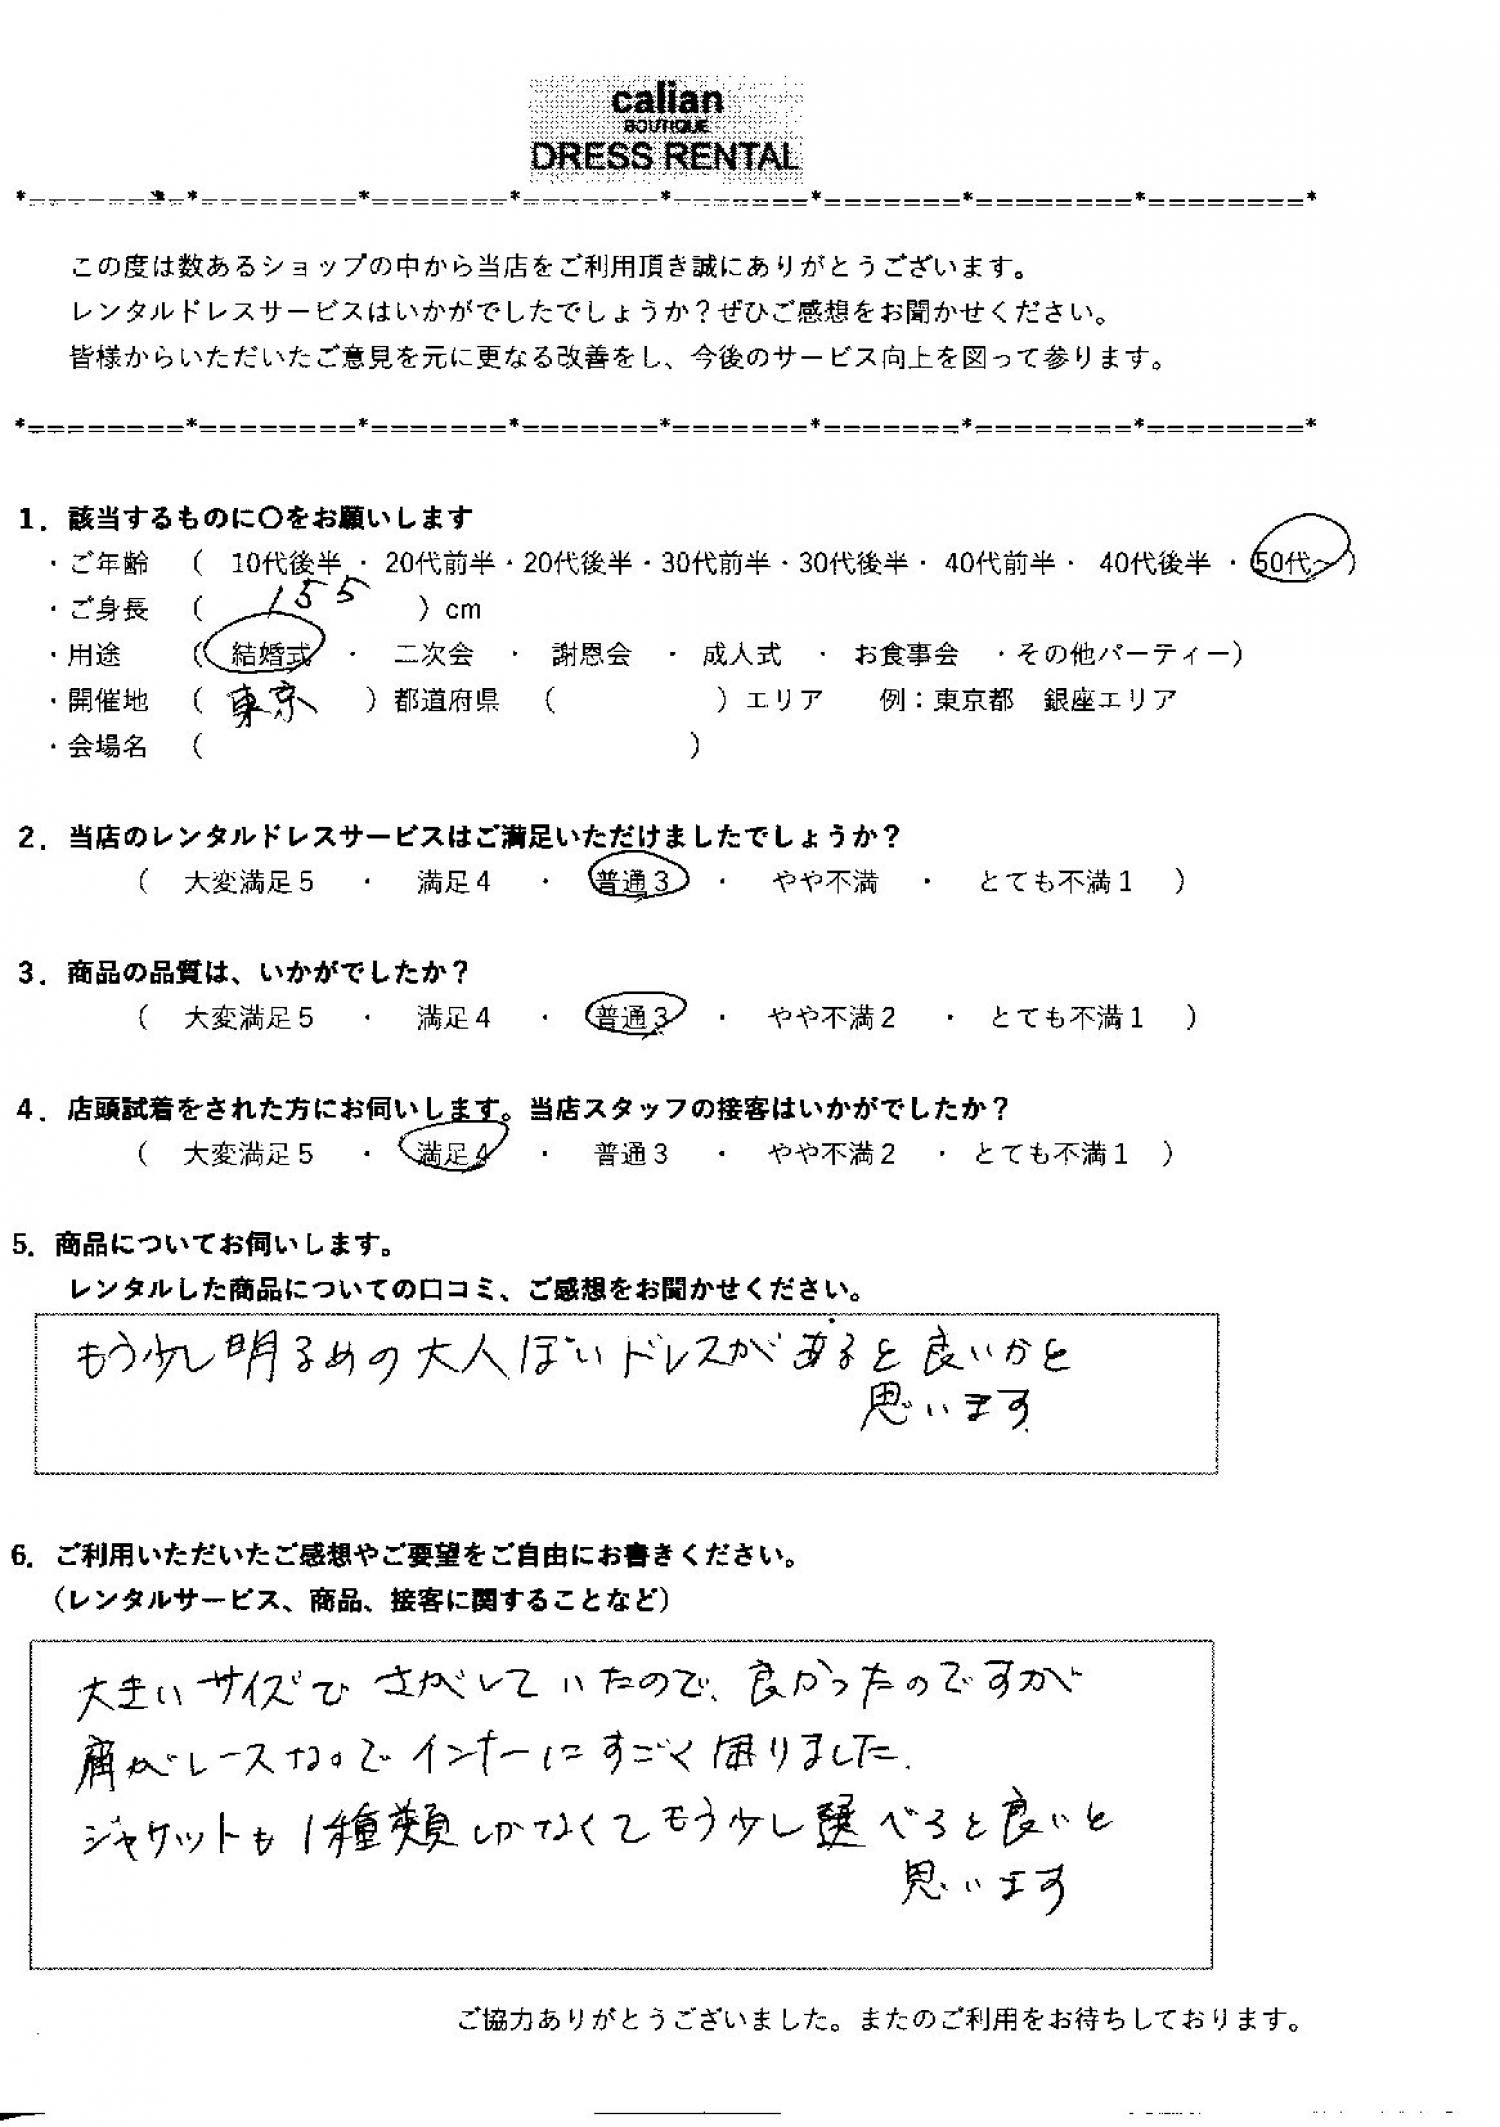 calian
BOUTIQUE
DRESS RENTAL
*========*========*=======*=======*=======*=======*========*========*
この度は数あるショップの中から当店をご利用頂き誠にありがとうございます。
レンタルドレスサービスはいかがでしたでしょうか？ぜひご感想をお聞かせください。
皆様からいただいたご意見を元に更なる改善をし、今後のサービス向上を図って参ります。
*========*========*=======*=======*=======*=======*========*========*
1．該当するものに〇をお願いします
・ご年齢 （ 10代後半 ・ 20代前半・20代後半・30代前半・30代後半・ 40代前半・ 40代後半 ・ 50代～）
・ご身長 （ 155 ）cm
・用途 （ 結婚式 ・ 二次会 ・ 謝恩会 ・ 成人式 ・ お食事会 ・その他パーティー）
・開催地 （ 東京 ）都道府県 （ ）エリア 例：東京都 銀座エリア
・会場名 （ ）
2．当店のレンタルドレスサービスはご満足いただけましたでしょうか？
（ 大変満足５ ・ 満足４ ・ 普通３ ・ やや不満 ・ とても不満１ ）
3．商品の品質は、いかがでしたか？
（ 大変満足５ ・ 満足４ ・ 普通３ ・ やや不満２ ・ とても不満１ ）
4．店頭試着をされた方にお伺いします。当店スタッフの接客はいかがでしたか？
（ 大変満足５ ・ 満足４ ・ 普通３ ・ やや不満２ ・ とても不満１ ）
5．商品についてお伺いします。
レンタルした商品についての口コミ、ご感想をお聞かせください。
もう少し明るめの大人ぽいドレスがあると良いかと
思います
6．ご利用いただいたご感想やご要望をご自由にお書きください。
（レンタルサービス、商品、接客に関することなど）
大きいサイズでさがしていたので、良かったのですが
肩がレースなのでインナーにすごく困りました.
ジャケットも1種類しかなくてもう少し選べると良いと
思います
ご協力ありがとうございました。またのご利用をお待ちしております。